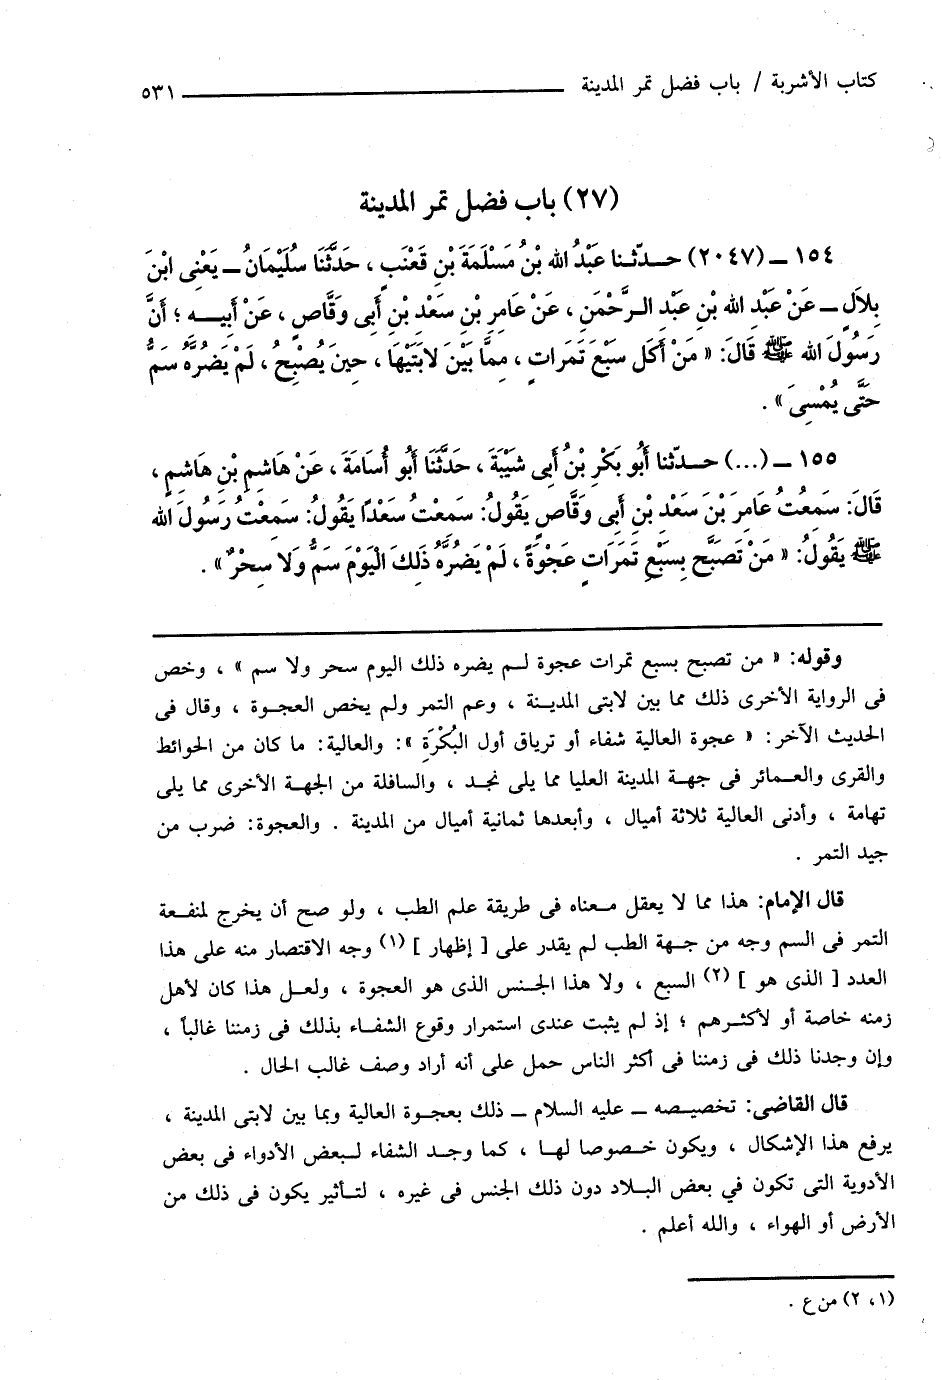 كتاب الأشربة / باب فضل تمر المدينة ــــــــــ ٥٣١
(٢٧) باب فضل تمر المدينة
١٥٤ ــ (٢٠٤٧) حـدّثـنا عَبْدُ الله بْنُ مَسْلَمَةَ بْنِ قَعْنَبٍ ، حَدَّثَنَا سُلَيْمَانُ ــ يَعْنِى ابْنَ
بِلاَلٍ ــ عَنْ عَبْدِ الله بْنِ عَبْدِ الـرَّحْمَنِ ، عَنْ عَامِرِ بْنِ سَعْدِ بْنِ أَبِى وَقَّاصٍ ، عَنْ أَبِيـه ؛ أَنَّ
رَسُولَ الله ﷺ قَالَ: « مَنْ أَكَلَ سَبْعَ تَمَرَاتٍ ، مِمَّا بَيْنَ لابَتَيْهَا ، حِينَ يُصْبِحُ ، لَمْ يَضُرَّهُ سَمٌّ
حَتَّى يُمْسِىَ » .
١٥٥ ــ (...) حـدّثنا أَبُو بَكْرِ بْنُ أَبِى شَيْبَةَ ، حَدَّثَنَا أَبُو أُسَامَةَ ، عَنْ هَاشِمِ بْنِ هَاشِمٍ ،
قَالَ: سَمِعْتُ عَامِرَ بْنَ سَعْدِ بْنِ أَبِى وَقَّاصٍ يَقُولُ: سَمِعْتُ سَعْدًا يَقُولُ: سَمِعْتُ رَسُولَ الله
ﷺ يَقُولُ: « مَنْ تَصَبَّحَ بِسَبْعِ تَمَرَاتٍ عَجْوَةً ، لَمْ يَضُرَّهُ ذَلِكَ الْيَوْمَ سَمٌّ وَلا سِحْرٌ » .
وقوله: « من تصبح بسبع تمرات عجوة لـم يضره ذلك اليوم سحر ولا سم » ، وخص
فى الرواية الأخرى ذلك مما بين لابتى المديـنة ، وعم التمر ولم يخص العجـوة ، وقال فى
الحديث الآخر: « عجوة العالية شفاء أو ترياق أول البُكْرَةِ »: والعالية: ما كان من الحوائط
والقرى والعـمائر فى جهـة المدينة العليا مما يلى نجـد ، والسافلة من الجهـة الأخرى مما يلى
تهامة ، وأدنى العالية ثلاثة أميال ، وأبعدها ثمانية أميال من المدينة . والعجوة: ضرب من
جيد التمر .
قال الإمام: هذا مما لا يعقل مـعناه فى طريقة علم الطب ، ولو صح أن يخرج لمنفـعة
التمر فى السم وجه من جـهة الطب لم يقدر على [ إظهار ] (١) وجه الاقتصار منه على هذا
العدد [ الذى هو ] (٢) السبع ، ولا هذا الجـنس الذى هو العجوة ، ولعـل هذا كان لأهل
زمنه خاصة أو لأكثـرهم ؛ إذ لم يثبت عندى استمرار وقوع الشفـاء بذلك فى زمننا غالباً ،
وإن وجدنا ذلك فى زمننا فى أكثر الناس حمل على أنه أراد وصف غالب الحال .
قال القاضى: تخصيـصه ــ عليه السلام ــ ذلك بعجـوة العالية وبما بين لابتى المدينة ،
يرفع هذا الإشكال ، ويكون خـصوصا لهـا ، كما وجـد الشفاء لـبعض الأدواء فى بعض
الأدوية التى تكون في بعض البـلاد دون ذلك الجنس فى غيره ، لتـأثير يكون فى ذلك من
الأرض أو الهواء ، والله أعلم .
(١، ٢) من ع .